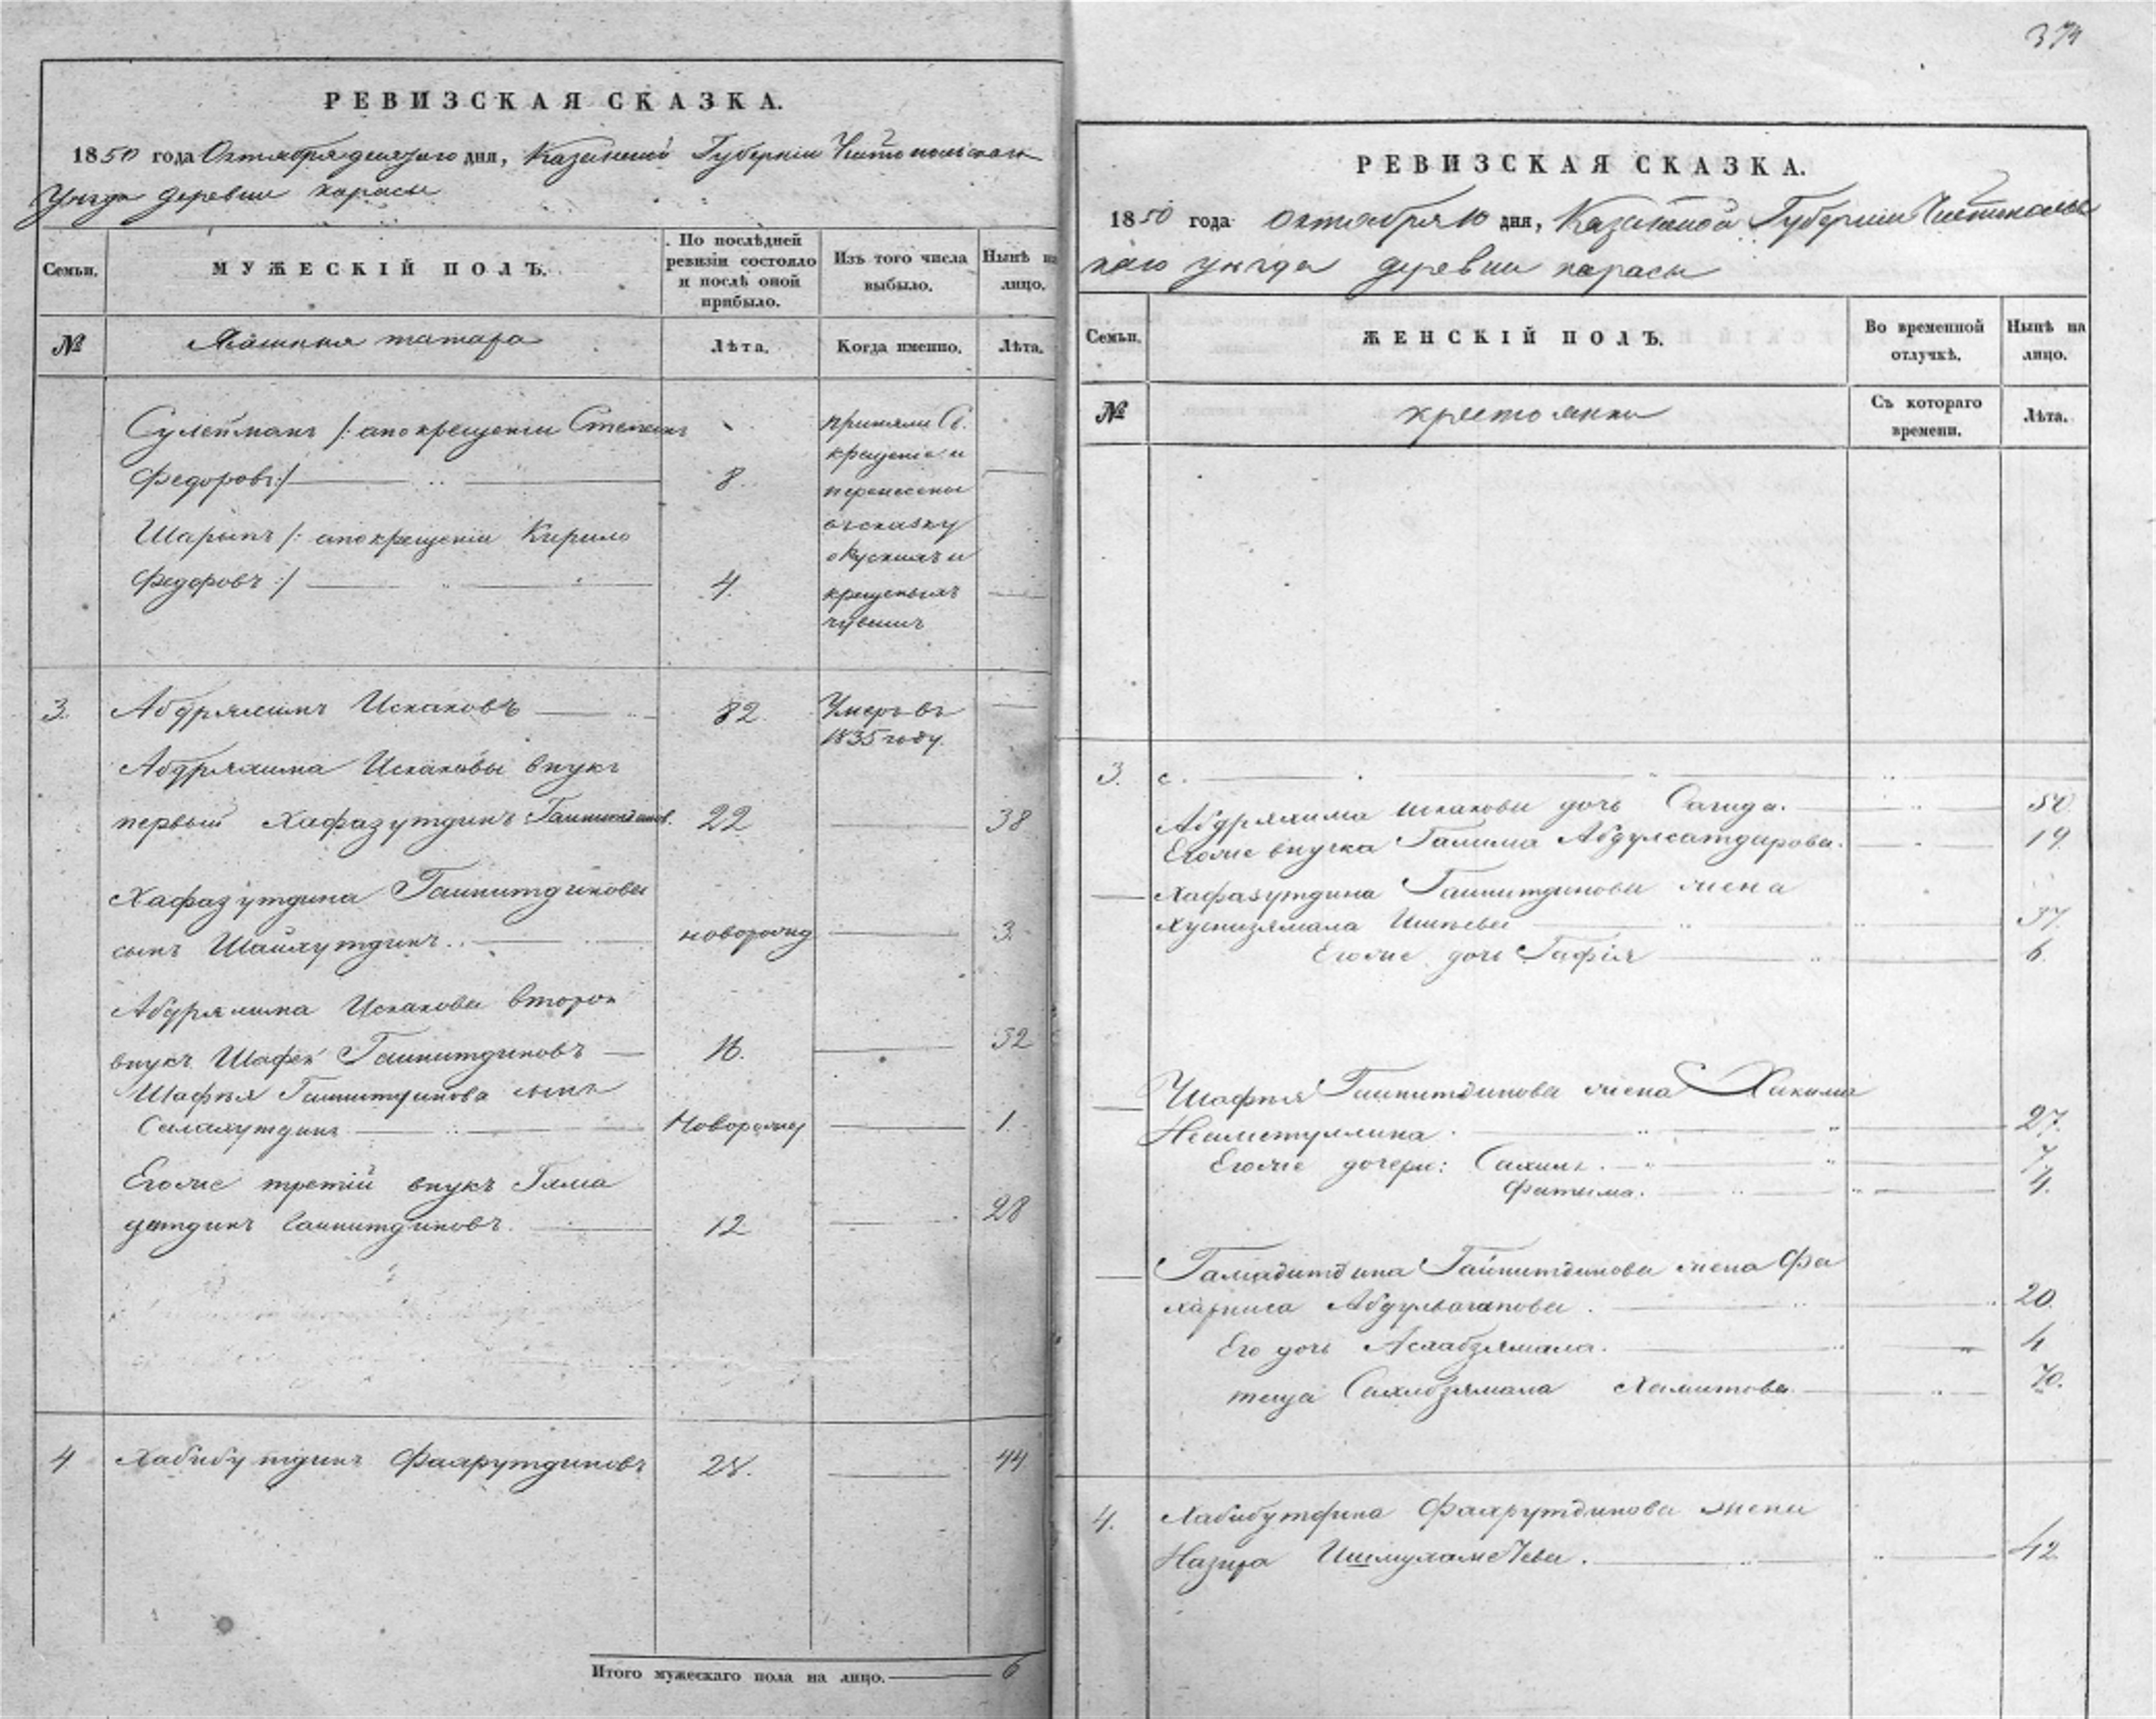 374
РЕВИЗСКАЯ СКАЗКА.
1850 года Октября десятого дня, Казанской Губернiи Чистопольскаго
Уѣзда деревни карасы
Семьи.
МУЖЕСКIЙ ПОЛЪ.
По послѣдней ревизiи состояло и послѣ оной прибыло.
Изъ того числа выбыло.
Нынѣ на лицо.
№
татара
Лѣта.
Когда именно.
Лѣта.
Сулейманъ /: апокрещенiи Степанъ
Федоровъ :/ 8.
Шарыпъ /: апокрещенiи Кирило
Федоровъ :/ 4.
приняли Св.
крещенiе и
перенесены
крещеныхъ
чувашъ
3. Абдряхимъ Искаковъ 82. Умеръ въ
1835 году.
Абдряхима Искаковы внукъ
первый Хафазутдинъ 22 38
Хафазутдина Гайнитдинова
сынъ Шайхутдинъ новорожд 3.
Абдряхима Искакова второй
внукъ Шафей Гайнитдиновъ 16. 32
Шафѣя Гайнитдинова сынъ
Салахутдинъ Новорожд 1.
Егоже третiй внукъ Гяма
детдинъ Гайнитдиновъ. 12 28
4 Хабибутдинъ Фахрутдиновъ 28. 44
Итого мужескаго пола на лицо. 6
РЕВИЗСКАЯ СКАЗКА.
1850 года октября 10 дня, Казанской Губернiи Чистополь
скаго уѣзда деревни карасы
Семьи.
ЖЕНСКIЙ ПОЛЪ.
Во временной отлучкѣ.
Нынѣ на лицо.
№
крестьянки
Съ котораго времени.
Лѣта.
3.
Абдряхима искакова дочь Сагида. 50
Егоже внучка Галима Абдулсатдарова. 19
Хафазутдина Гайнитдинова жена
Хуснизямала 37.
Егоже дочь Гафiя 6.
Шафѣя Гайнитдинова жена Хакима
27.
Егоже дочери: 7
Фатима. 4.
Гамадитдина Гайнитдинова жена Фа
харниса 20.
Его дочь 4
теща Сахибзямала Хамитова 70.
4. Хабибутдина Фахрутдинова жена
Назира Ишмухаметева. 42